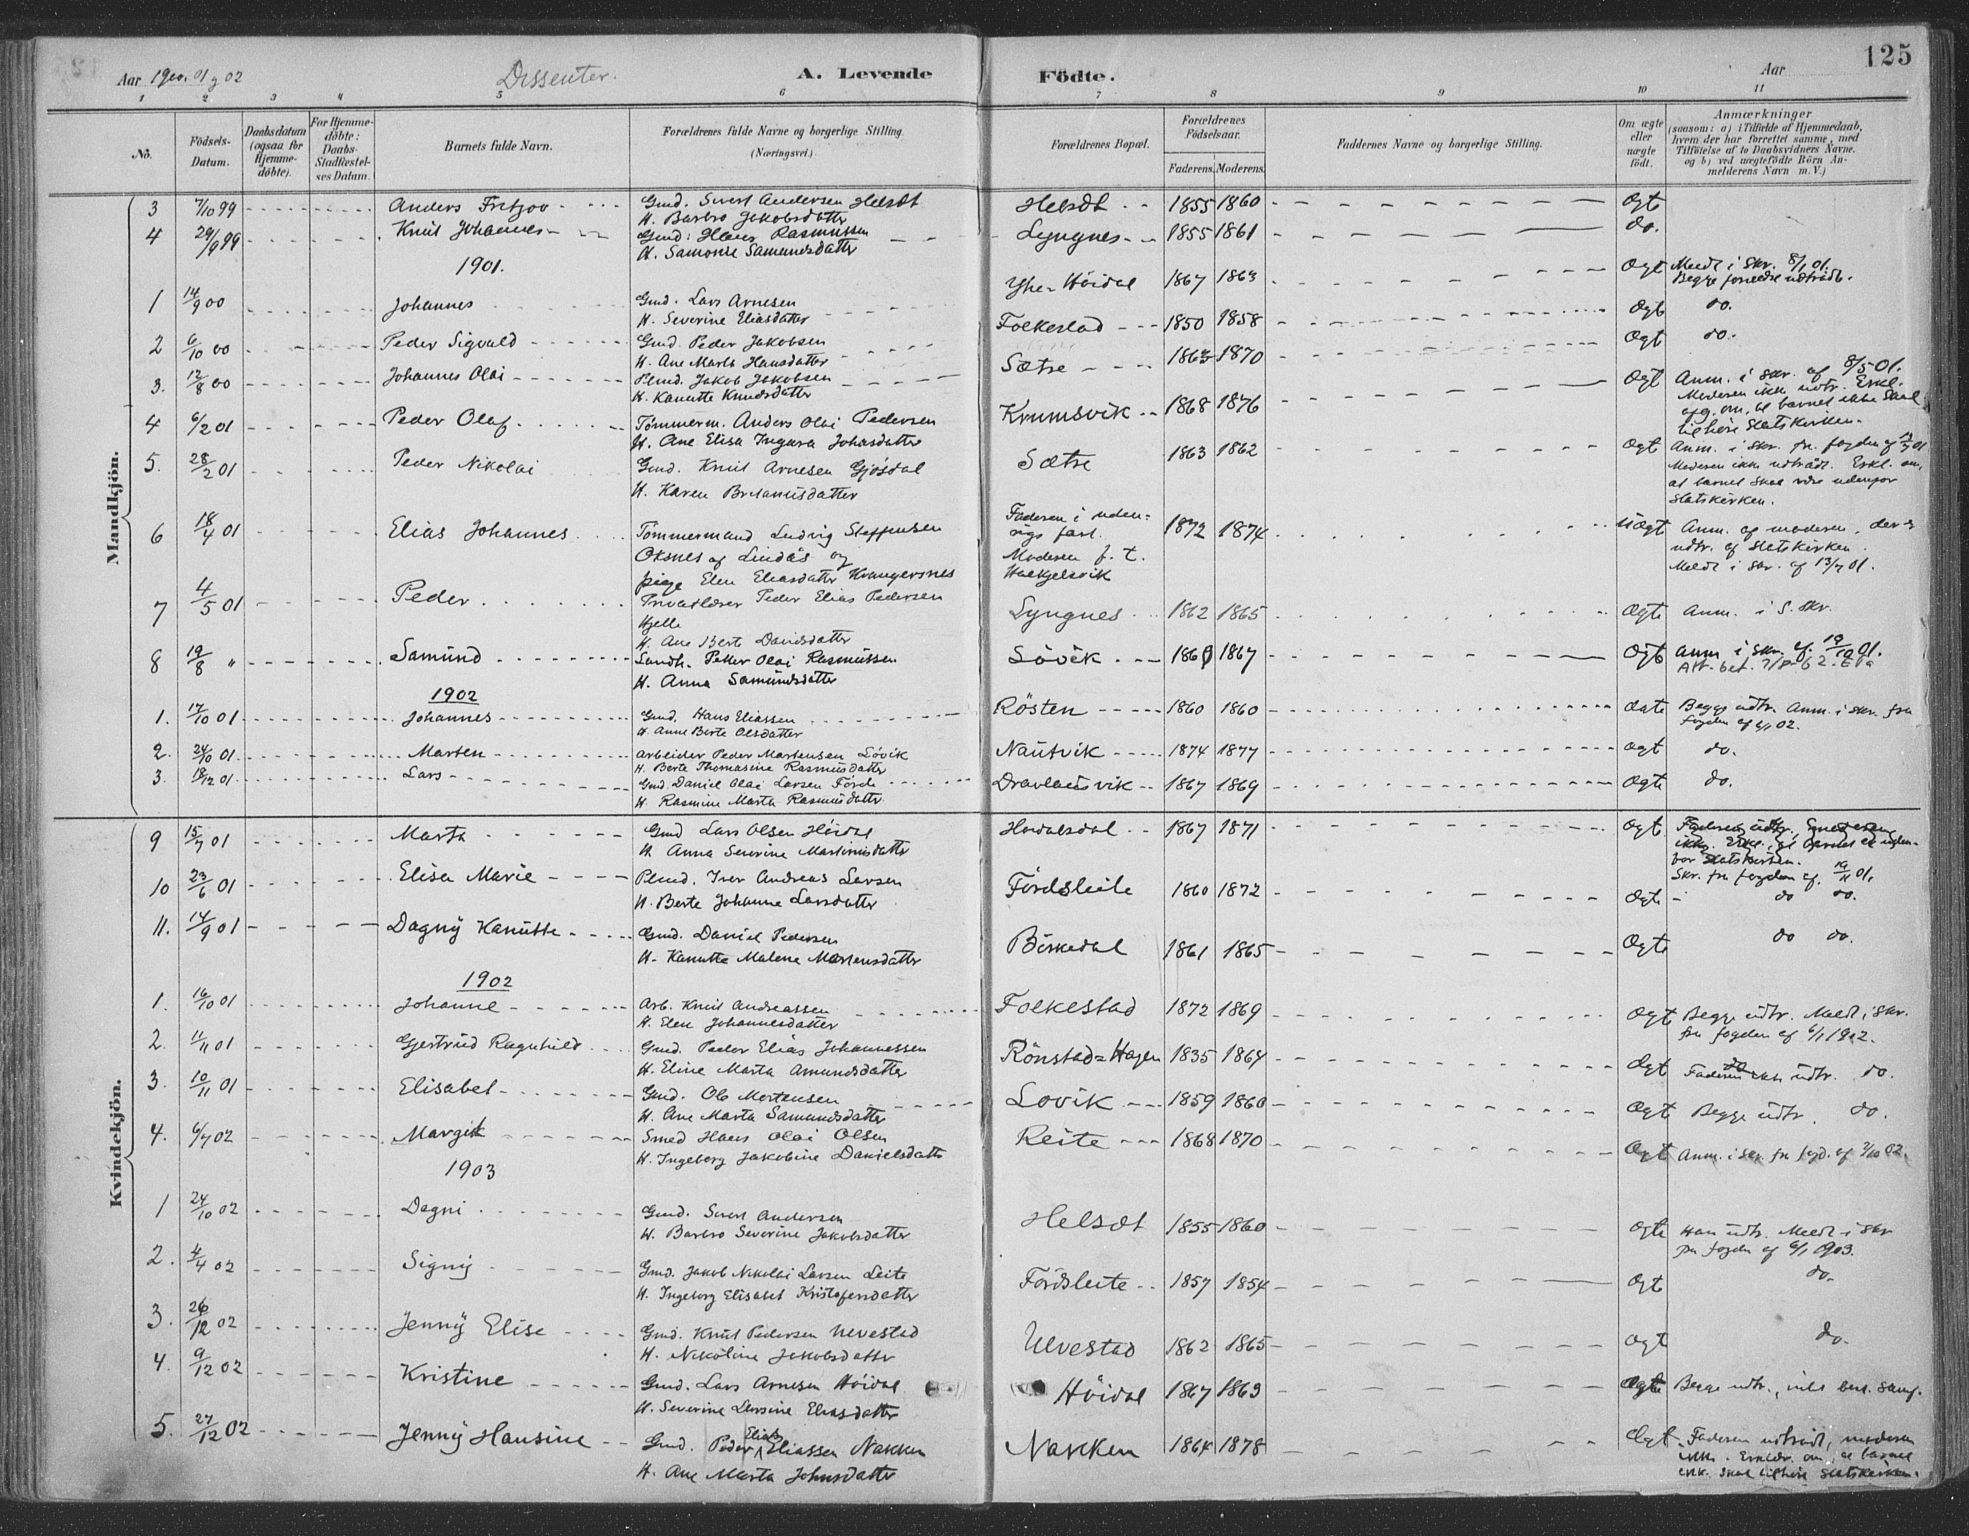 125
Aar 1900, 01 og 02 Dissenter. A. Levende Födte. Aar
1 2 3 4 5 6 7 8 9 10 11
No. Födsels-Datum. Daabsdatum (ogsaa for Hjemmedöbte). For Hjemmedöbte: Daabs-Stadfæstelses Datum. Barnets fulde Navn. Forældrenes fulde Navne og borgerlige Stilling. (Næringsvei.) Forældrenes Bopæl. Forældrenes Födselsaar. Faderens. Moderens. Faddernes Navne og borgerlige Stilling. Om ægte eller uægte födt. Anmærkninger (saasom: a) i Tilfælde af Hjemmedaab, hvem der har forrettet samme, med Tilföielse af to Daabsvidners Navne, og b) ved uægtefödte Börn Anmelderens Navn m. V.)
Mandkjön.
3 7/10 99 Anders Fritjov Gmd. Sivert Andersen Helsöt Helsöt 1855 1860 Ægt
H. Barbro Jakobsdatter
4 29/9 99 Knut Johannes Gmd: Hans Rasmussen Lyngnes 1855 1861 do.
H. Samonie Samundsdatter
1901.
1 14/9 00 Johannes Gmd. Lars Arnesen Yhe-Höidal 1867 1863 Ægt Meldt i Skr. 8/1 01.
H. Severine Eliasdatter Begge forældre udtrådt.
2 6/10 00 Peder Sigvald Gmd. Peder Jakobsen Folkestad 1850 1858 Ægt do.
H. Ane Marta Hansdatter
3. 12/8 00 Johannes Olai Plmd. Jakob Jakobsen Sætre 1863 1870 Ægt do.
H. Kanutte Knudsdatter
4 6/2 01 Peder Olaf Tömmerm. Anders Olai Pedersen Krumsvik 1868 1876 Ægt Anm. i skr. af 8/5 01.
H. Ane Elisa Ingvara Johansdatter Moderen ikke udtr. Erkl.
afg. om, at barnet ikke skal
tilhöre Statskirken.
5. 28/2 01 Peder Nikolai Gmd. Knut Arnesen Gjösdal Sætre 1863 1862 Ægt Anm. i skr. fra fogden af
H. Karen Moderen ikke udtrådt. Erkl. om,
at barnet skal være udenfor
Statskirken.
6 18/4 01 Elias Johannes Tömmermand Ludvig Steffensen Faderen i uden- 1872 1874 Uægt Anm. af moderen, der er
Oksnes af Lindås og rigs fart. udtr. af Statskirken.
pige Elen Eliasdatter Moderen f. t. Meldt i skr. af 13/7 01.
7 4/5 01 Peder Privatlærer Peder Elias Pedersen Lyngnes 1862 1865 Ægte Anm. i S. Skr.
Hjelle
H. Ane Bert Davidsdatter
8 19/8 " Samund Landh. Petter Olai Rasmussen Lövik 1867 Ægt Anm. i skr. af 19/10 01.
H. Anna Samundsdatter
1902
1. 17/10 01 Johannes Gmd. Hans Eliassen Rösten 1860 1860 Begge udtr. Anm. i skr. fra
H. Anne Berte Olsdatter fogden af 6/1 02.
2. 24/10 01. Marten Arbeider Peder Martensen Lövik Nautvik 1874 1877 Ægt do.
H. Berte Thomasine Rasmusdatter
3. 18/12 01. Lars Gmd. Daniel Olai Larsen Förde Dravlausvik 1867 1869 Ægte do.
H. Rasmine Marta Rasmusdatter
Kvindekjön.
9 15/7 01 Marta Gmd Lars Olsen Höidal Hodalsdal 1867 1871 Ægt Faderen udtr., moderen
H. Anna Severine Martinusdatter ikke. Erkl. at barnet er uden-
for Statskirken.
10 23/6 01 Elisa Marie Plmd. Iver Andreas Larsen Fördsleite 1860 1872 Ægt Skr. fra fogden af 19/11 01.
H. Berte Johanne Larsdatter do do.
11. 14/9 01 Dagny Kanutte Gmd. Daniel Pedersen Birkedal 1861 1865 Ægte do do.
H. Kanutta Malene Martensdatter
1902
1. 16/10 01 Johanne Arb. Knut Andreassen Folkestad 1872 1869 Ægt Begge udtr. Meldt i skr.
H. Elen Johannesdatter fra fogden af 6/1 1902.
2. 11/11 01 Gjertrud Ragnhild Gmd. Peder Elias Johannessen Rönstad=Hagen 1835 1864 Ægt Faderen ikke udtr. do.
H. Eline Marta Amundsdatter
3. 10/11 01 Elisabet Gmd. Ole Mortensen Lovik 1859 1860 Ægt Begge udtr. do.
H. Ane Marta Samundsdatter
4. 6/7 02 Margit Smed Hans Olai Olsen Reite 1868 1870 Ægt Anm. i skr. fra fogd. af 2/10 02.
H. Ingeborg Jakobine Danielsdatter
1903
1 24/10 02 Dagni Gmd. Sivert Andersen Helsöt 1855 1860 Ægte Han udtr. Meldt i skr
H. Barbro Severine Jakobsdatter fra fogden af 6/1 1903.
2. 4/4 02 Signy Gmd. Jakob Nikolai Larsen Leite Fördsleite 1857 1854 Ægt do.
H. Ingeborg Elisabet Kristofersdatter
3. 26/12 02 Jenny Elise Gmd. Knut Pedersen Ulvestad Ulvestad 1862 1865 Ægt do.
H. Nikoline Jakobsdatter
4. 9/12 02 Kristine Gmd. Lars Arnesen Höidal Höidal 1867 1863 Ægte Begge udtr.,
H. Severine Eliasdatter
5. 27/12 02 Jenny Hansine Gmd. Peder Elias Eliassen Nakken Nakken 1864 1878 Ægt Faderen udtrådt, moderen
H. Ane Marta Johnsdatter ikke. Erklær. om at barnet
ikk. skal tilhöre Statskirken.